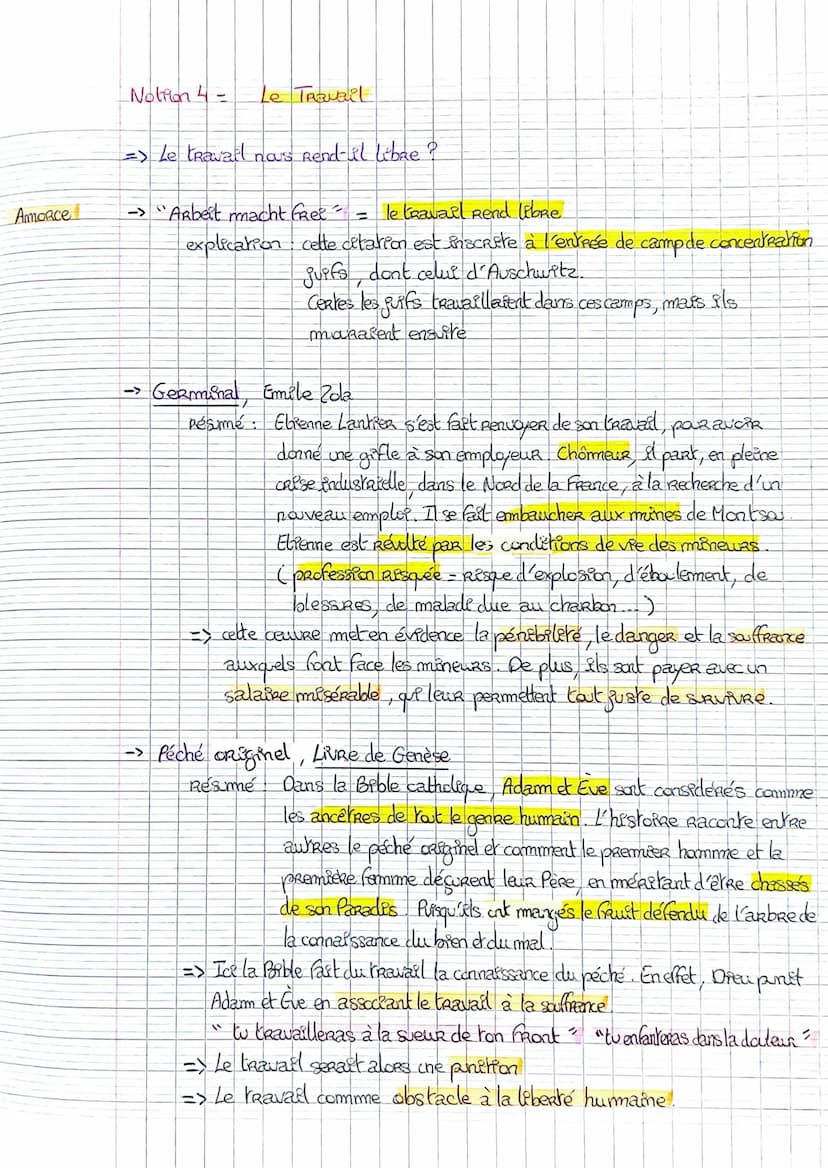 Notion 4 = Le Travail
=> Le travail nous rend-il libre ?
Amorce !
-> "Arbeit macht frei" = le travail rend libre
explication : cette citation est inscrite à l'entrée de camp de concentration
juifs, dont celui d'Auschwitz.
Certes les juifs travaillaient dans ces camps, mais ils
mouraient ensuite
-> Germinal, Emile Zola
Résumé : Etienne Lantier s'est fait renvoyer de son travail, pour avoir
donné une gifle à son employeur. Chômeur, il part, en pleine
crise industrielle, dans le Nord de la France, à la recherche d'un
nouveau emploi. Il se fait embaucher aux mines de Montsou.
Etienne est révolté par les conditions de vie des mineurs.
( profession risquée = risque d'explosion, d'éboulement, de
blessures, de malade due au charbon ... )
=> cette œuvre met en évidence la pénibilité, le danger et la souffrance
auxquels font face les mineurs. De plus, ils sont payer avec un
salaire misérable, qui leur permettent tout juste de survivre.
-> Péché originel, Livre de Genèse
Résumé : Dans la Bible catholique, Adam et Ève sont considérés comme
les ancêtres de tout le genre humain. L'histoire raconte entre
autres le péché originel et comment le premier homme et la
première femme déçurent leur Père, en méritant d'être chassés
de son Paradis. Puisqu'ils ont mangés le fruit défendu de l'arbre de
la connaissance du bien et du mal.
=> Ici la Bible fait du travail la connaissance du péché. En effet, Dieu punit
Adam et Ève en associant le travail à la souffrance.
" tu travailleras à la sueur de ton front " "tu enfanteras dans la douleur "
=> Le travail serait alors une punition
=> Le travail comme obstacle à la liberté humaine !